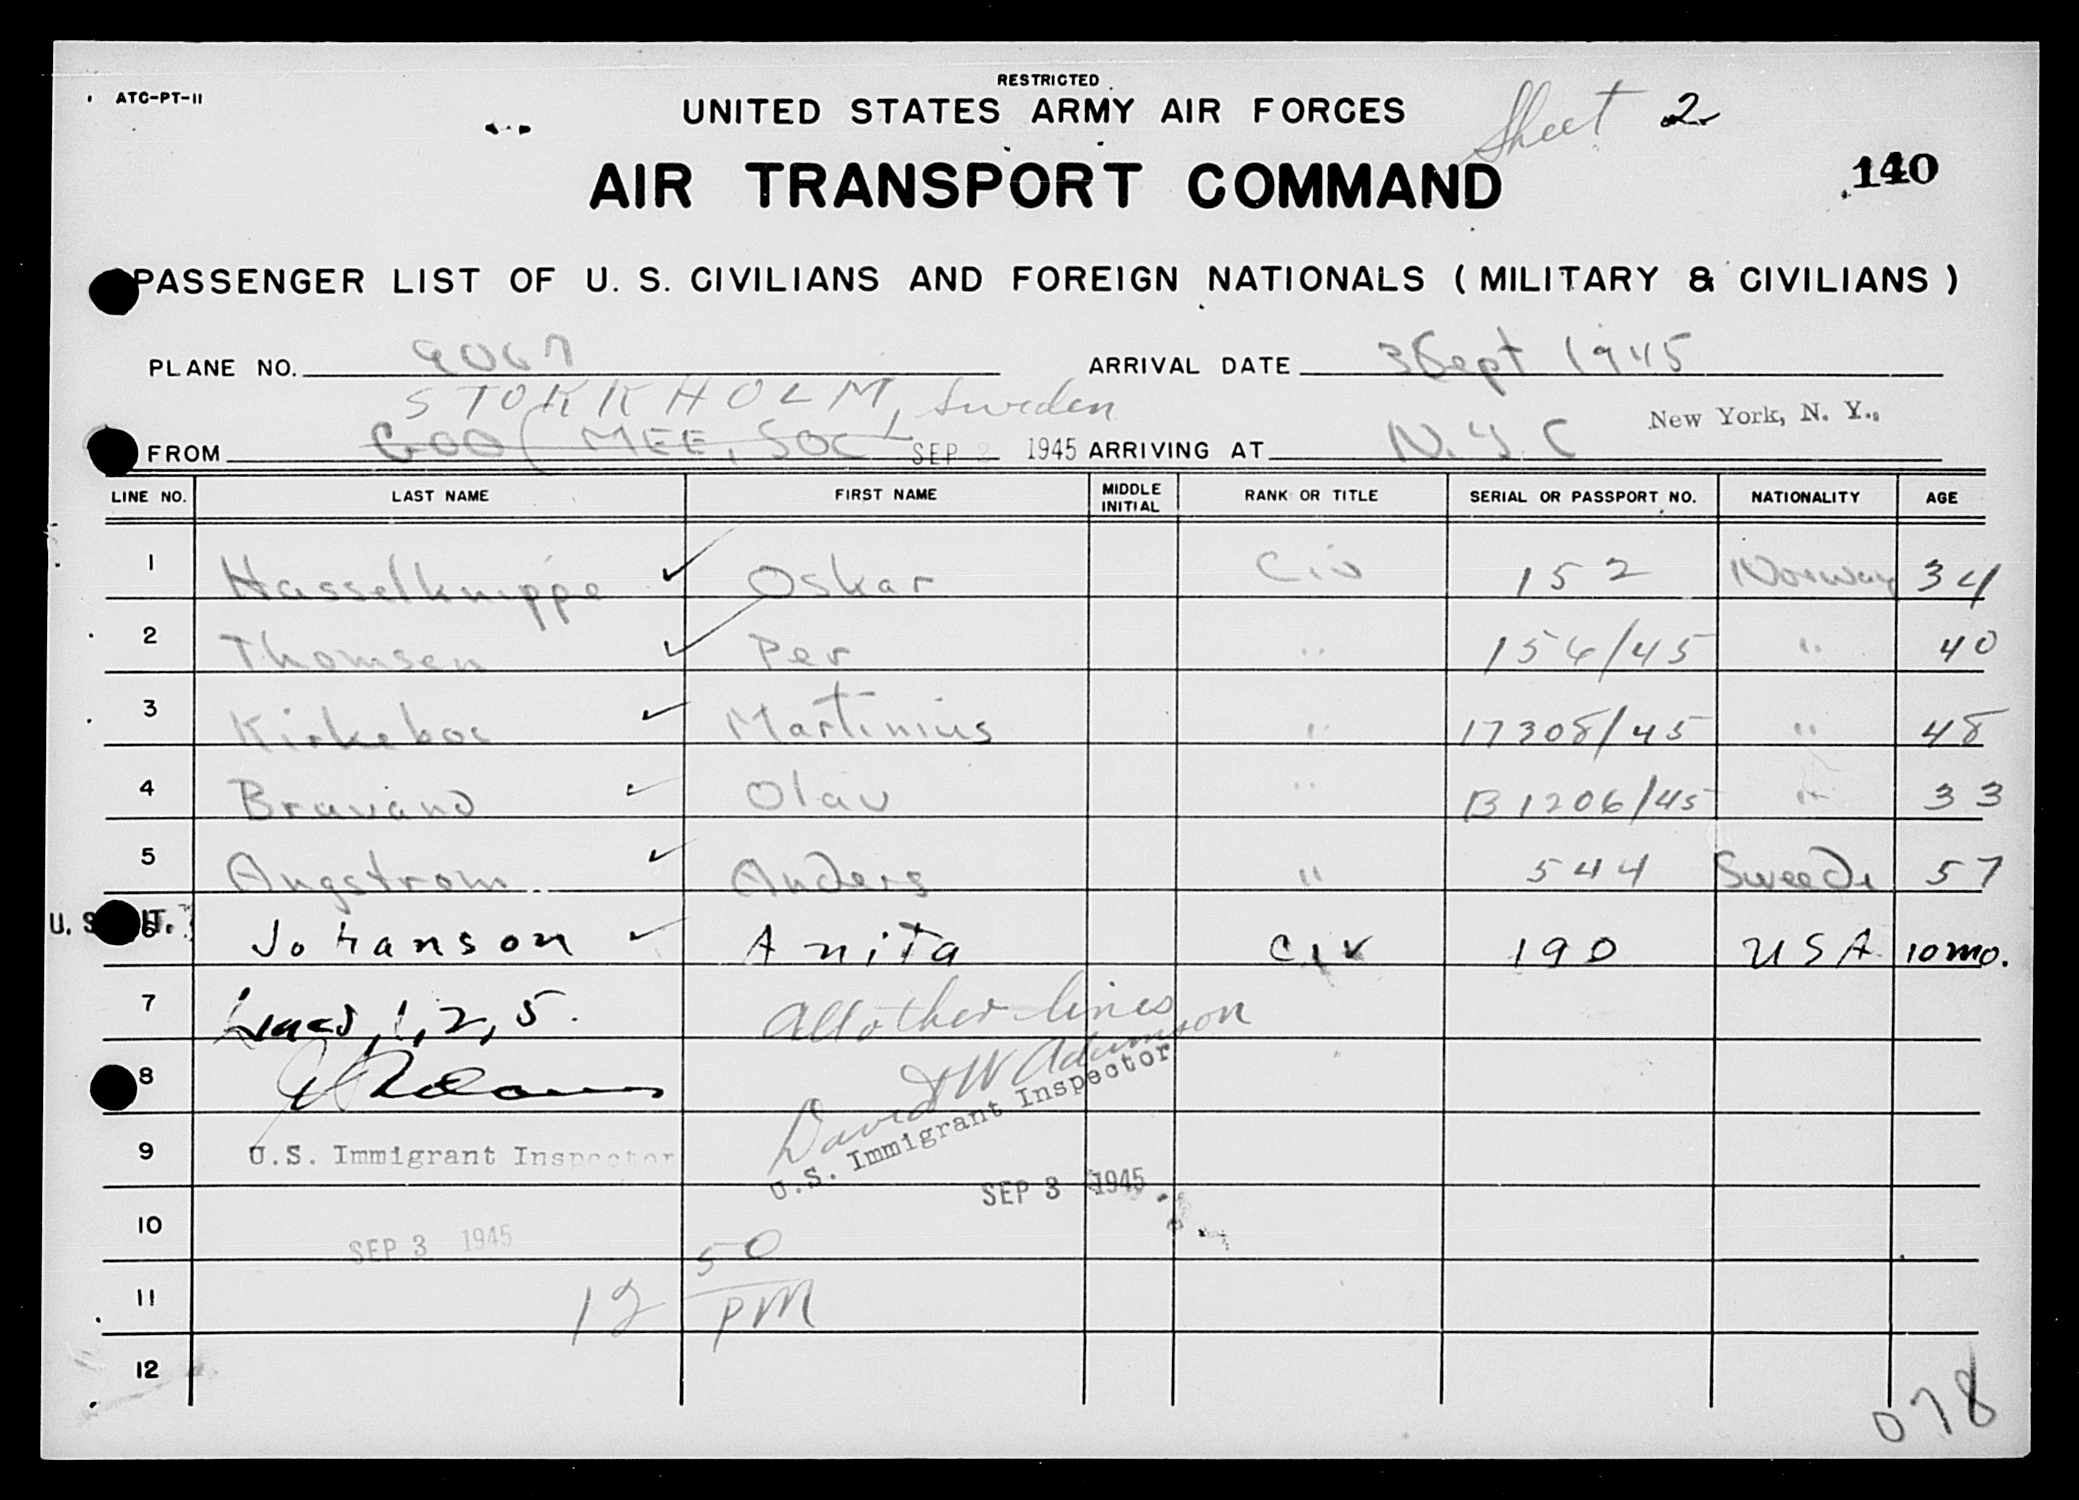 RESTRICTED
ATC-PT-11
UNITED STATES ARMY AIR FORCES
Sheet 2
AIR TRANSPORT COMMAND
140
PASSENGER LIST OF U. S. CIVILIANS AND FOREIGN NATIONALS ( MILITARY & CIVILIANS )
PLANE NO. 9067 ARRIVAL DATE 3 Sept 1945
STOKKHOLM, Sweden
New York, N. Y.,
FROM SEP 1945 ARRIVING AT N.Y.C
LINE NO. LAST NAME FIRST NAME MIDDLE INITIAL RANK OR TITLE SERIAL OR PASSPORT NO. NATIONALITY AGE
1 Hasselknippe Oskar Civ 152 Norway 34
2 Thomsen Per " 156/45 " 40
3 Kirkeboe Martinius " 17308/45 " 48
4 Bruvand Olav " B1206/45 " 33
5 Angstrom Anders " 544 Sweede 57
U. S. CIT.
6 Johanson Anita Civ 190 USA 10 mo.
7 Lines 1, 2, 5. All other lines
8 David W Adamson
9 U.S. Immigrant Inspector U.S. Immigrant Inspector
SEP 3 1945
10 SEP 3 1945
11 12 50 PM
12
078